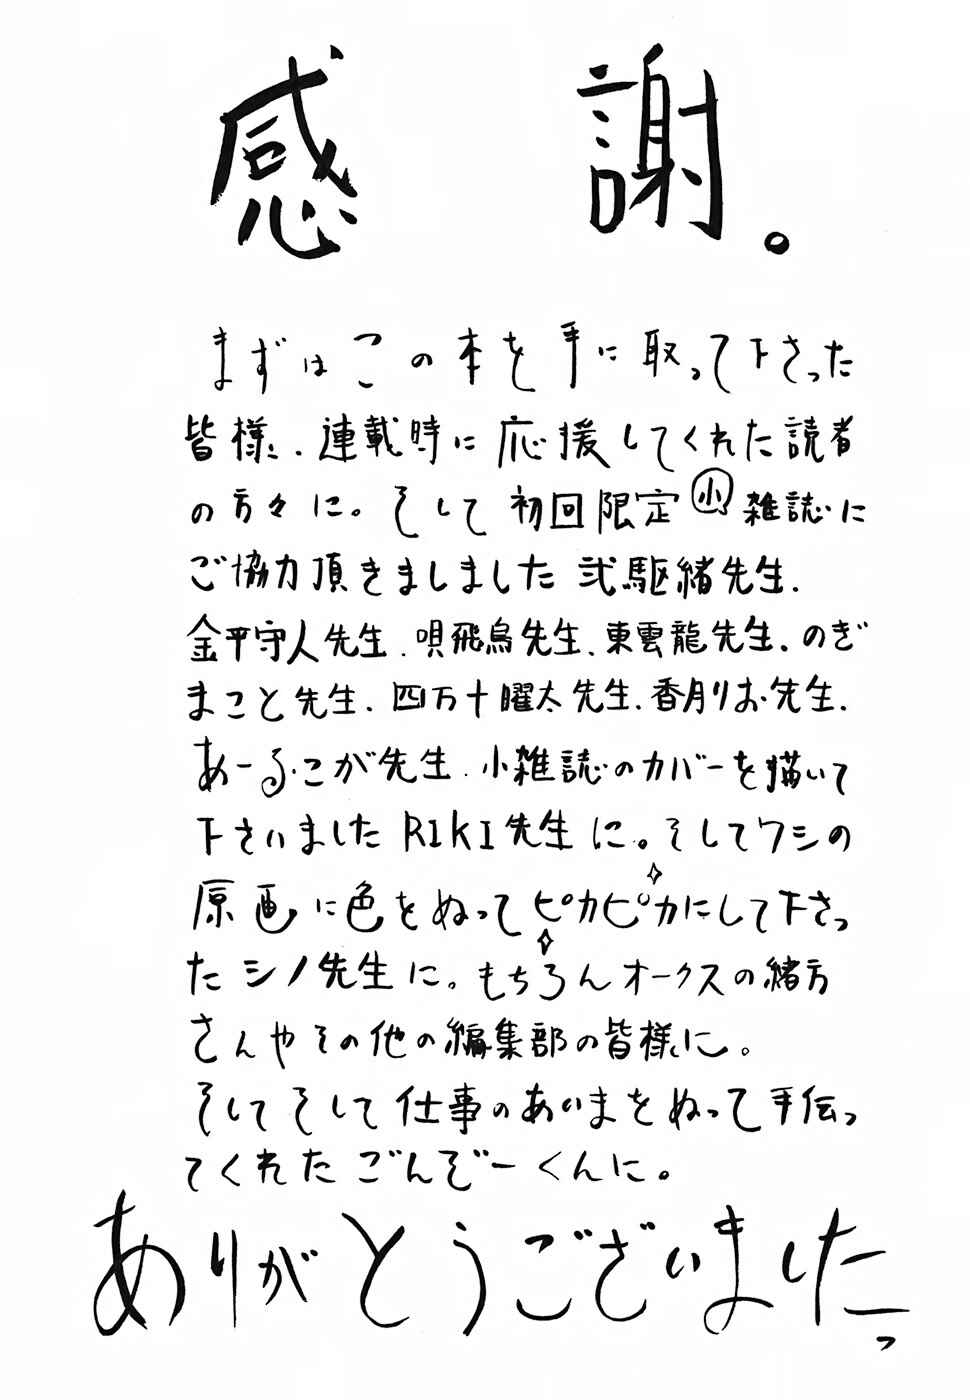 感謝。
まずはこの本を手に取って下さった
皆様、連載時に応援してくれた読者
の方々に。そして初回限定小雑誌に
ご協力頂きましました弐駆緒先生、
金平守人先生、唄飛鳥先生、東雲龍先生、のぎ
まこと先生、四万十曜太先生、香月りお先生、
あーるこが先生、小雑誌のカバーを描いて
下さいましたRIKI先生に。そしてワシの
原画に色をぬってピカピカにして下さっ
たシノ先生に。もちろんオークスの緒方
さんやその他の編集部の皆様に。
そしてそして仕事のあいまをぬって手伝っ
てくれたごんぞーくんに。
ありがとうございましたっ